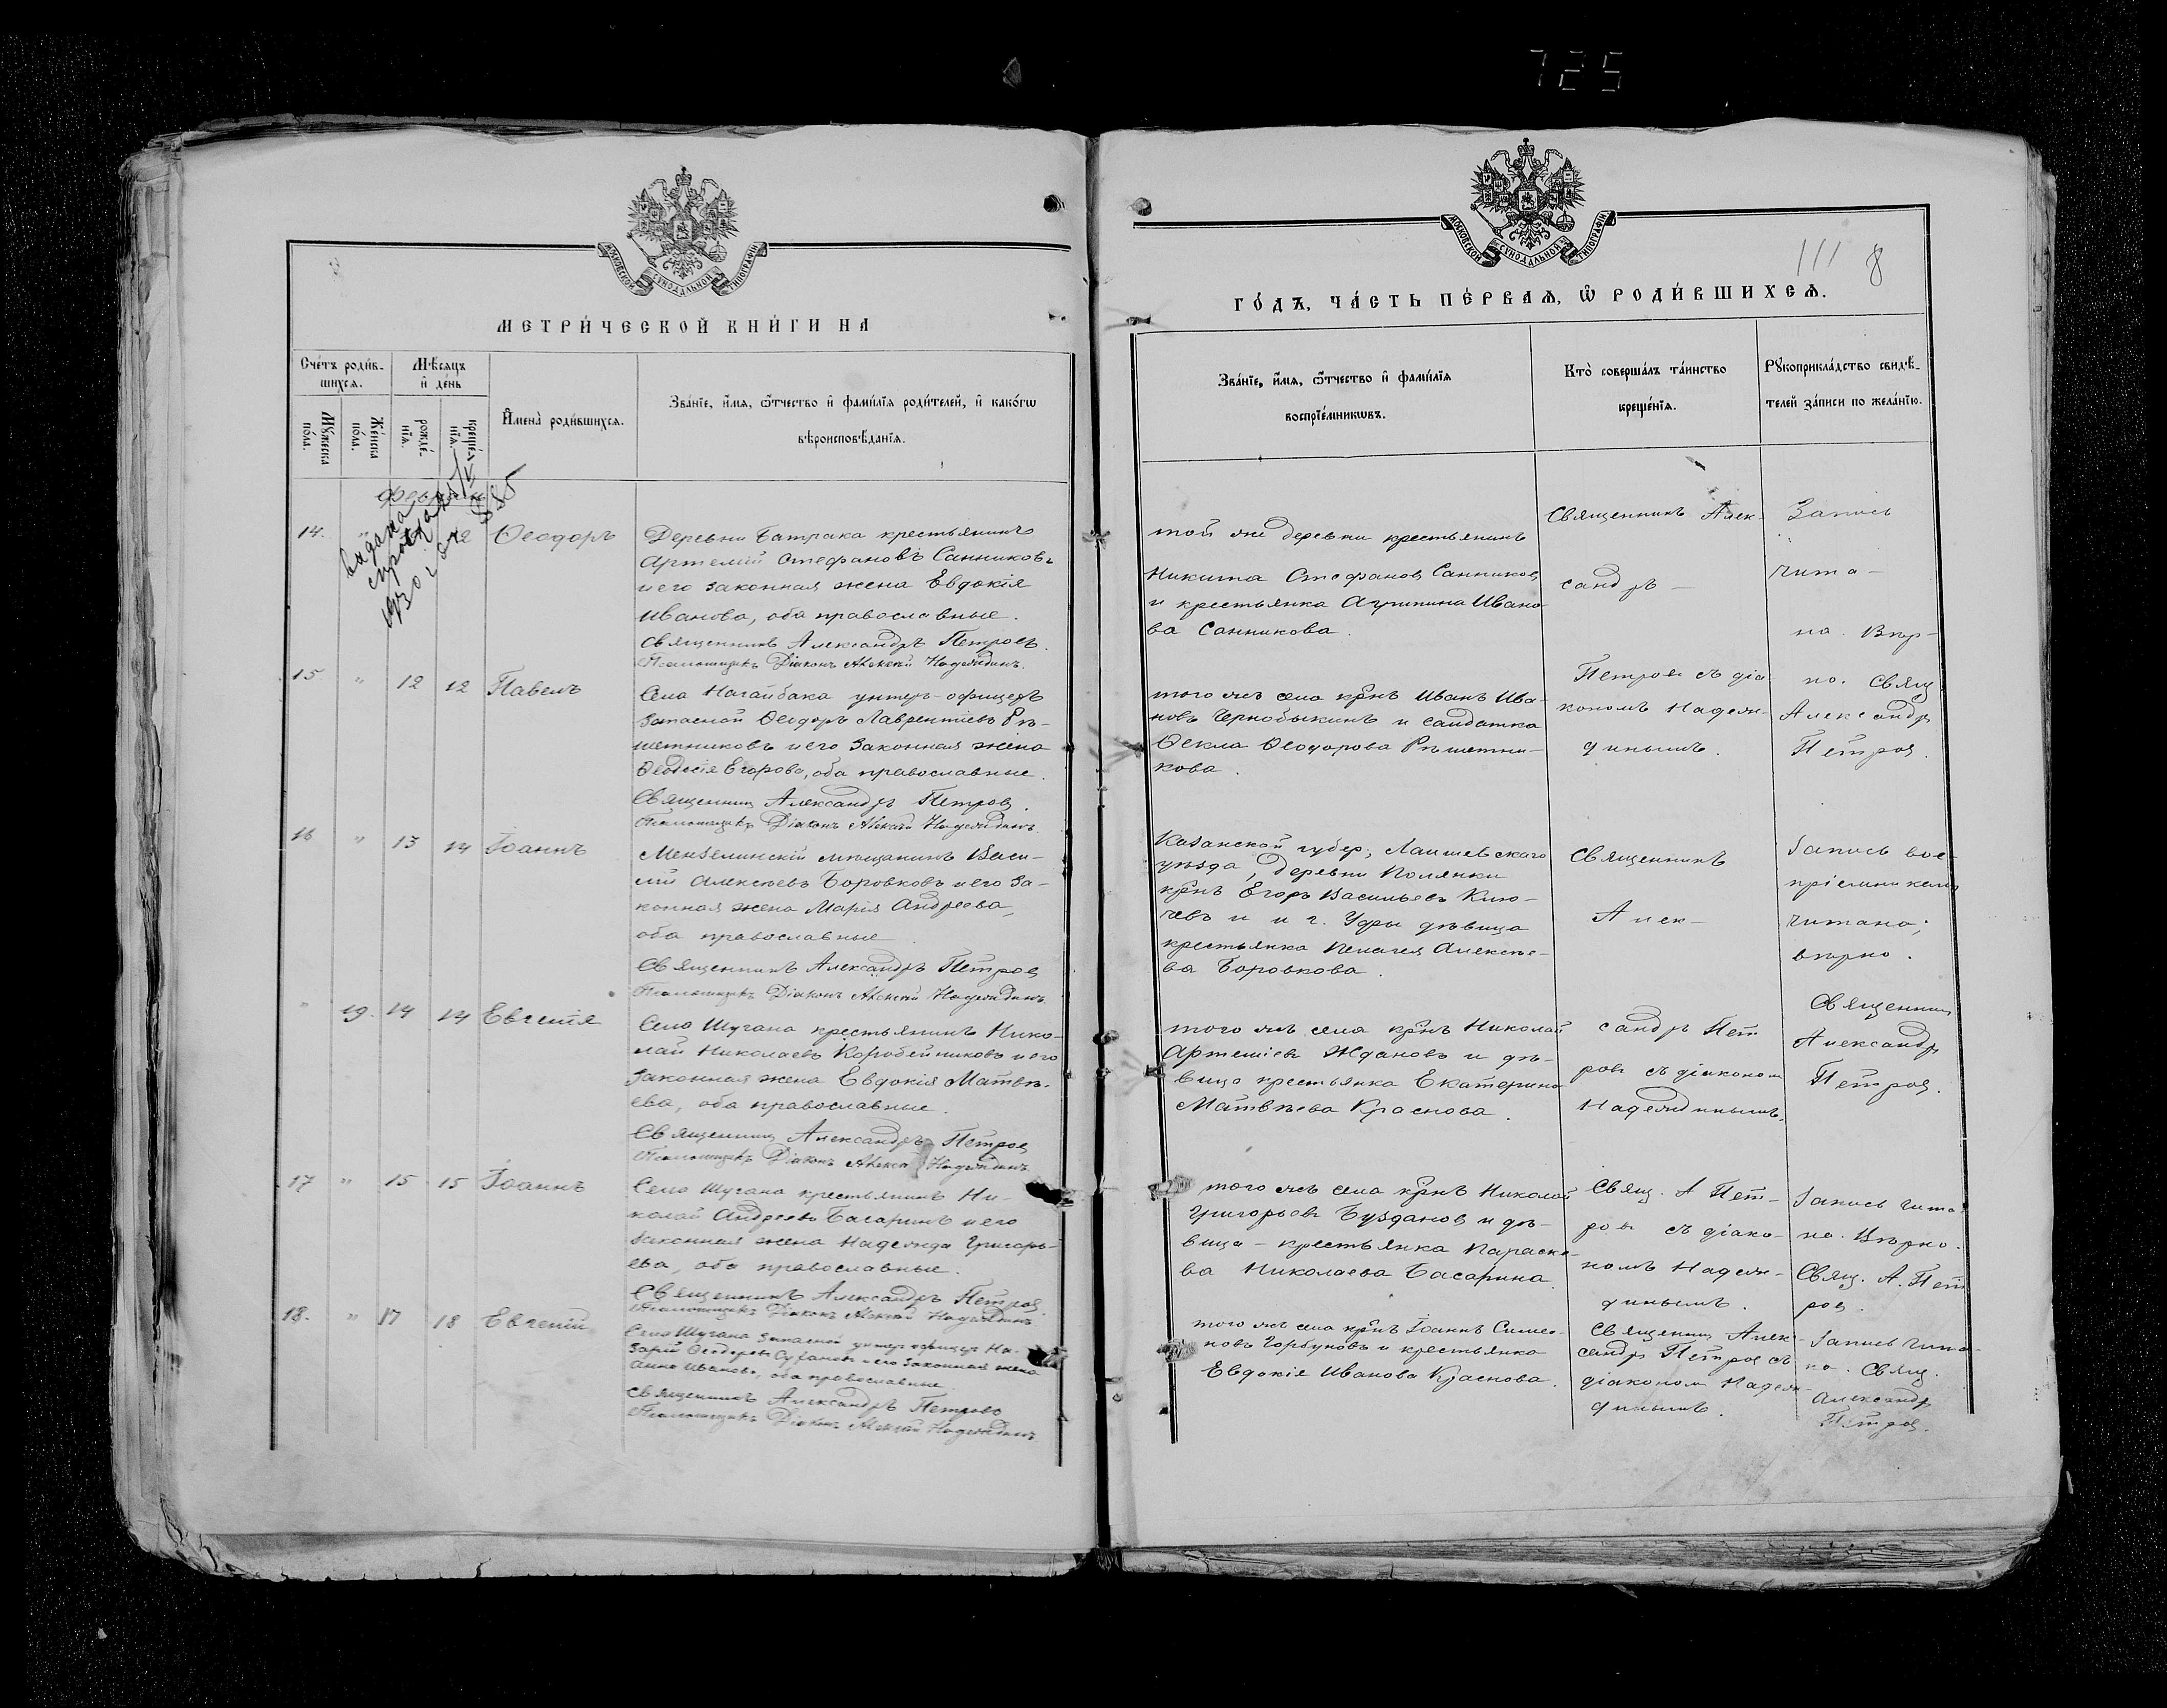 725
МОСКОВСКОЙ СѴНОДАЛЬНОЙ ТИПОГРАФІИ
МЕТРИ́ЧЕСКОЙ КНИ́ГИ НА
Сче́тъ роди́в-
шихсѧ.
Мѣ́сяцъ
и҆ де́нь
И҆мена̀ роди́вшихсѧ.
Зва́нїе, и҆́мѧ, ѻ҆́тчество и҆ фами́лїѧ роди́телей, и҆ како́гѡ
вѣроисповѣ́данїѧ.
Мꙋ́жеска
по́ла.
Же́нска
по́ла.
рожде́-
нїѧ.
креще́-
нїѧ.
Февраль
выдана
справка
1930 г.
885
14.
"
12
Ѳеодоръ
Деревни Батрака крестьянинъ
Артемій Стефановъ Санниковъ
и его законная жена Евдокія
Иванова, оба православные.
Священникъ Александръ Петровъ.
Псаломщикъ Діаконъ Алексій Надеждинъ.
15
"
12
12
Павелъ
Села Нагайбака унтеръ-офицеръ
запасной Ѳеодоръ Лаврентіевъ Рѣ-
шетниковъ и его законная жена
Ѳеодосія Егорова, оба православные.
Священникъ Александръ Петровъ.
Псаломщикъ Діаконъ Алексій Надеждинъ.
16
"
13
14
Іоаннъ
Мензелинскій мѣщанинъ Васи-
лій Алексѣевъ Боровковъ и его за-
конная жена Марія Андреева,
оба православные.
Священникъ Александръ Петровъ
Псаломщикъ Діаконъ Алексій Надеждинъ.
"
19.
14
14
Евгенія
Села Шугана крестьянинъ Нико-
лай Николаевъ Коробейниковъ и его
законная жена Евдокія Матвѣ-
ева, оба православные.
Священникъ Александръ Петровъ
Псаломщикъ Діаконъ Алексій Надеждинъ
17
"
15
15
Іоаннъ
Села Шугана крестьянинъ Ни-
колай Андреевъ Басаринъ и его
законная жена Надежда Григорь-
ева, оба православные.
Священникъ Александръ Петровъ.
Псаломщикъ Діаконъ Алексій Надеждинъ
18.
"
17
18
Евгеній
Села Шугана запасной унтеръ офицеръ На-
зарій Ѳеодоровъ и его законная жена
Анна Иванова, оба православные.
Священникъ Александръ Петровъ
Псаломщикъ Діаконъ Алексій Надеждинъ
МОСКОВСКОЙ СѴНОДАЛЬНОЙ ТИПОГРАФІИ
111 8
ГО́ДЪ, ЧА́СТЬ ПЕ́РВАѦ, Ѡ҆ РОДИ́ВШИХСѦ.
Зва́нїе, и҆́мѧ, ѻ҆́тчество и҆ фами́лїѧ
воспрїе́мникѡвъ.
Кто̀ соверша́лъ та́инство
креще́нїѧ.
Рꙋкоприкла́дство свидѣ́-
телей за́писи по жела́нїю.
той же деревни крестьянинъ
Никита Стефановъ Санниковъ
и крестьянка Агрипина Ивано-
ва Санникова.
Священникъ Алек-
сандръ
Запись
чита-
на. Вѣр-
того же села крнъ Иванъ Ива-
новъ Чернобыкинъ и солдатка
Ѳекла Ѳеодорова Рѣшетни-
кова.
Петровъ съ діа-
кономъ Надеж-
динымъ.
но. Свящ
Александръ
Петровъ.
Казанской губер., Лаишевскаго
уѣзда, деревни Полянки
крнъ Егоръ Васильевъ Клю-
чевъ и г. Уфы дѣвица
крестьянка Пелагея Алексѣе-
ва Боровкова.
Священникъ
Алек-
Запись вос-
пріемникамъ
читана;
вѣрно.
того же села крнъ Николай
Артеміевъ Ждановъ и дѣ-
вица крестьянка Екатерина
Матвѣева Краснова.
сандръ Пет
ровъ съ діакономъ
Надеждинымъ.
Священникъ
Александръ
Петровъ.
того же села крнъ Николай
Григорьевъ Буздановъ и дѣ-
вица - крестьянка Параске-
ва Николаева Басарина.
Свящ. А Пет-
ровъ съ діако-
номъ Надеж-
динымъ.
Запись чита-
на. Вѣрно.
Свящ. А. Пет
ровъ.
того же села крнъ Іоаннъ Симео-
новъ Горбуновъ и крестьянка
Евдокія Иванова Краснова.
Священникъ Алек-
сандръ Петровъ съ
діакономъ Надеж-
динымъ.
Запись чита-
на. Свящ.
Александръ
Петровъ.